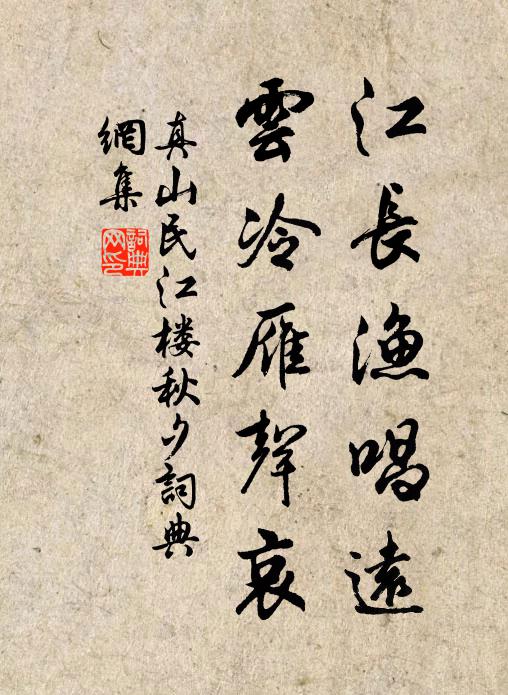 江長漁唱遠
雲冷雁聲哀
真山民江楼秋夕詞典
網集
詞典
网印